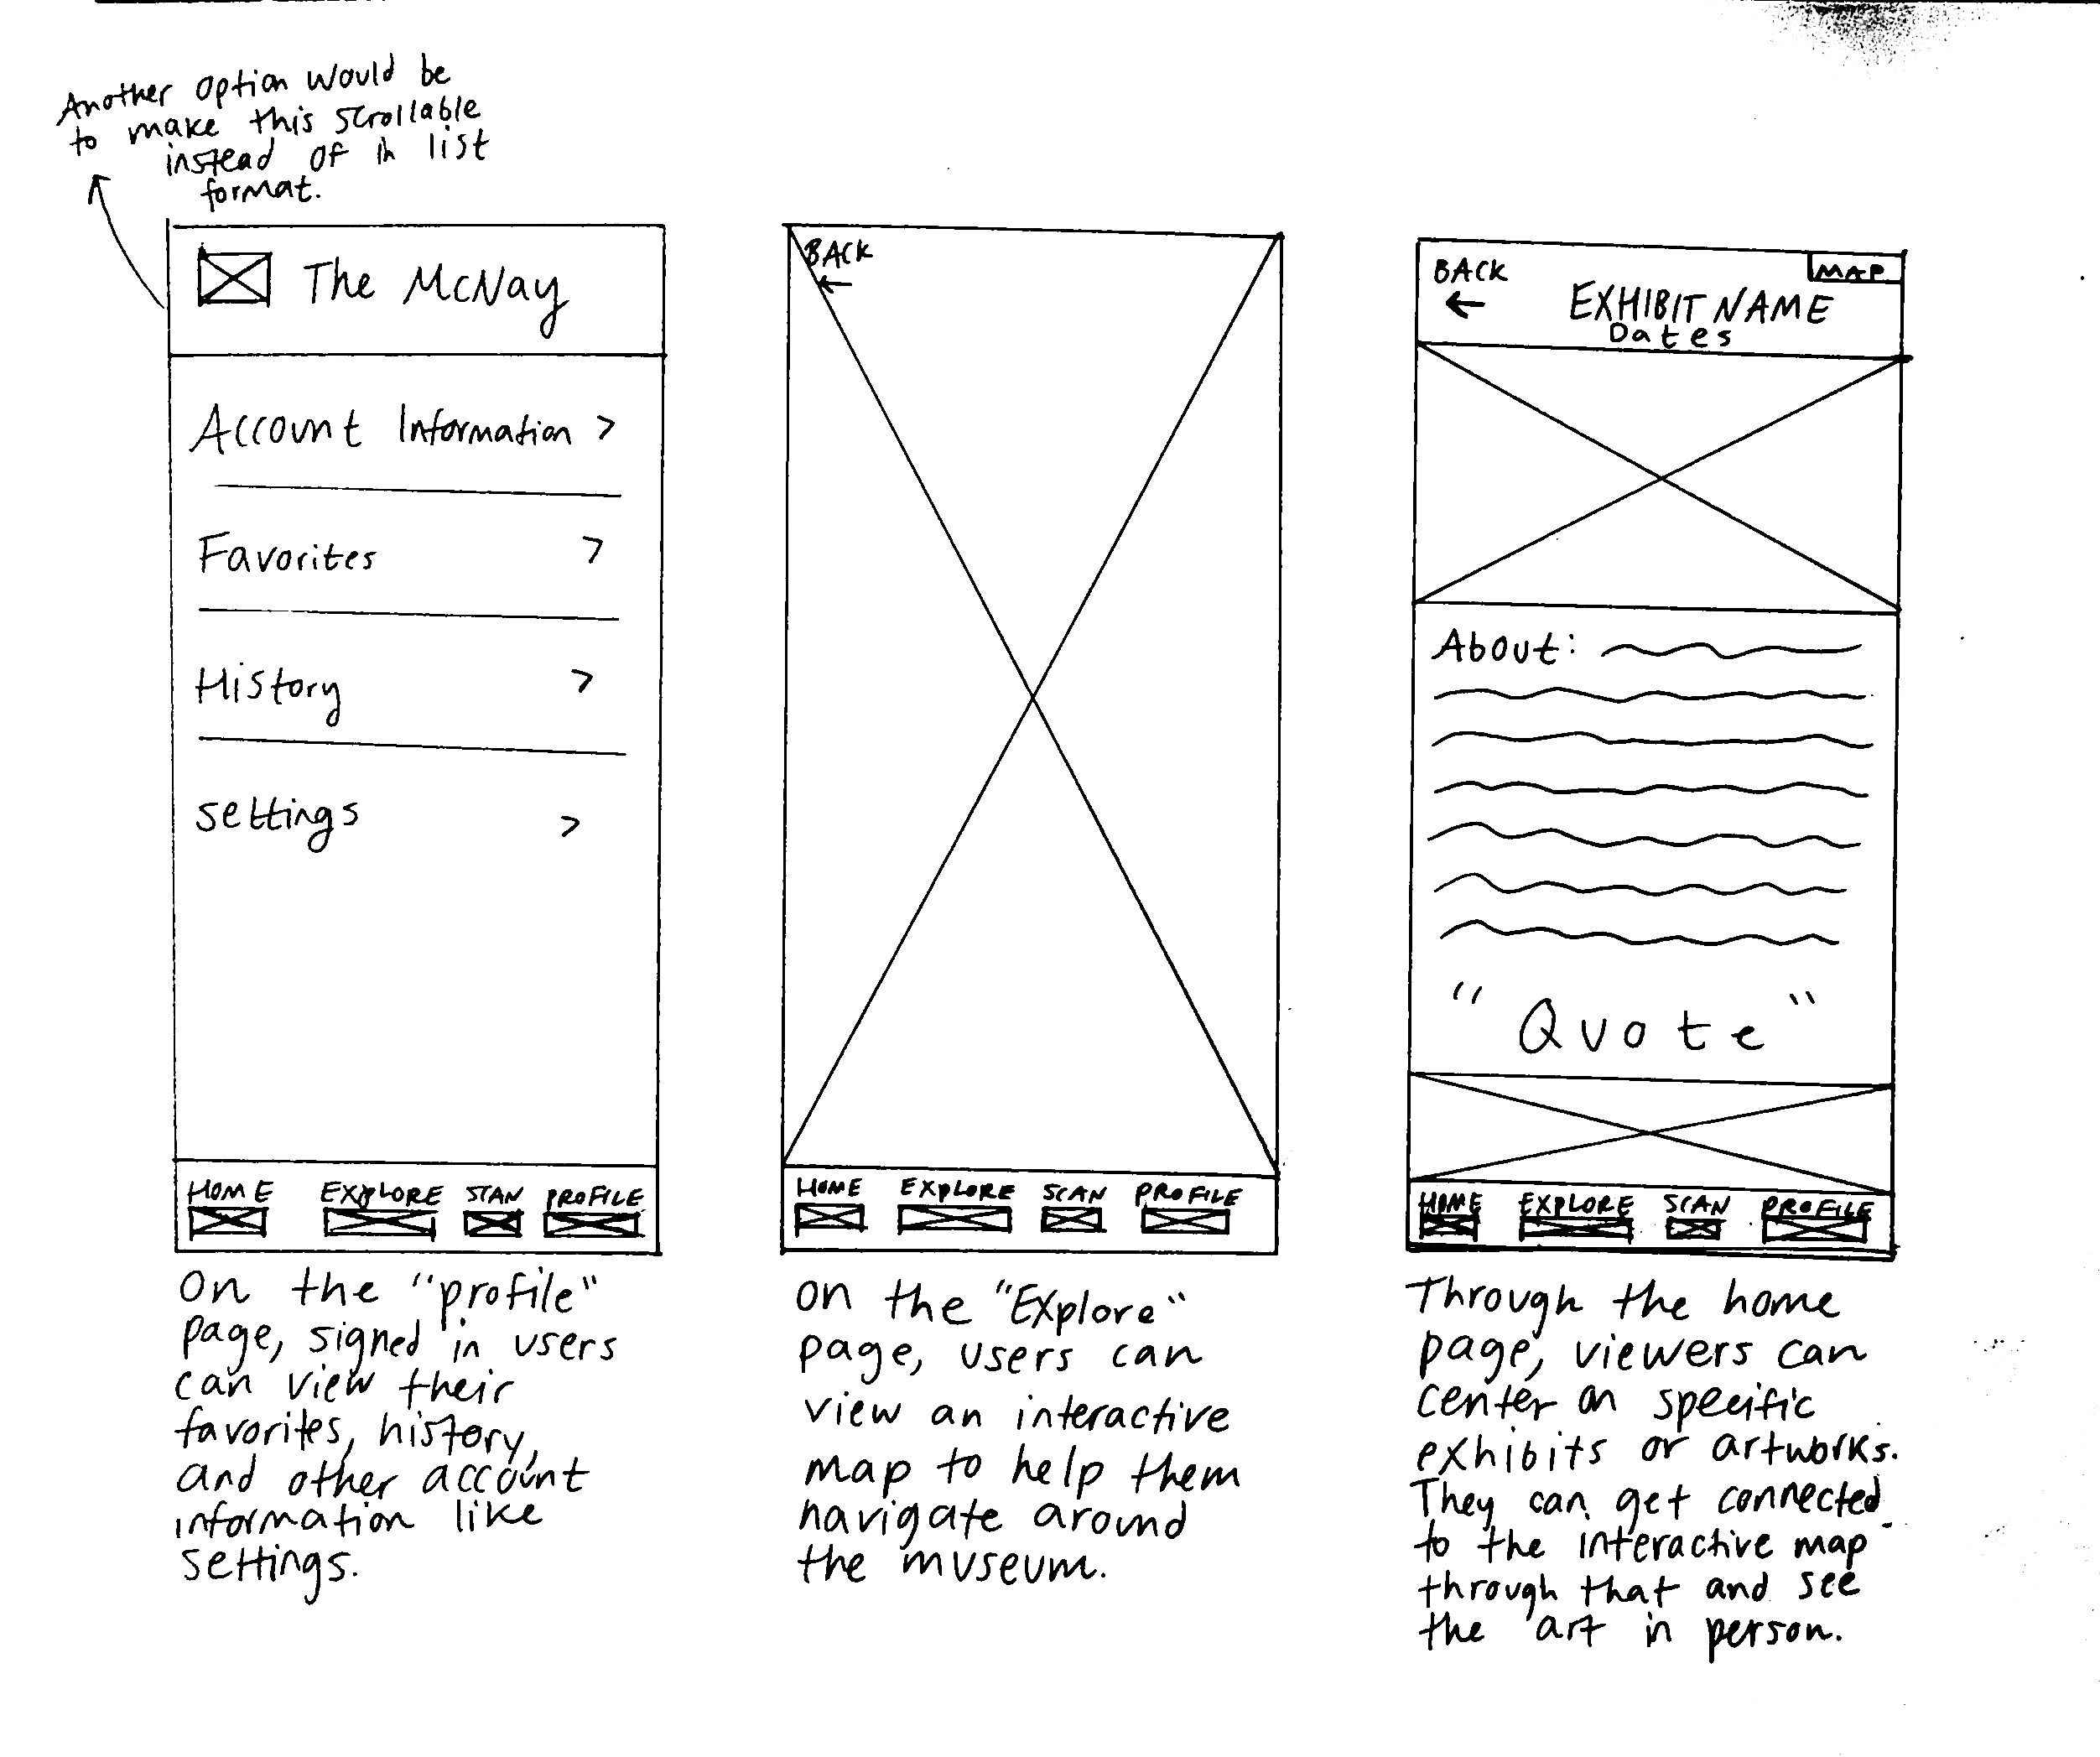 Another option would be
to make this scrollable
instead of in list
format.
The McNay
Account Information >
Favorites >
History >
settings >
HOME EXPLORE SCAN PROFILE
On the "profile"
page, signed in users
can view their
favorites, history,
and other account
information like
settings.
BACK
←
HOME EXPLORE SCAN PROFILE
on the "Explore"
page, users can
view an interactive
map to help them
navigate around
the museum.
BACK MAP
← EXHIBIT NAME
Dates
About:
"Quote"
HOME EXPLORE SCAN PROFILE
Through the home
page, viewers can
center on specific
exhibits or artworks.
They can get connected
to the interactive map
through that and see
the art in person.